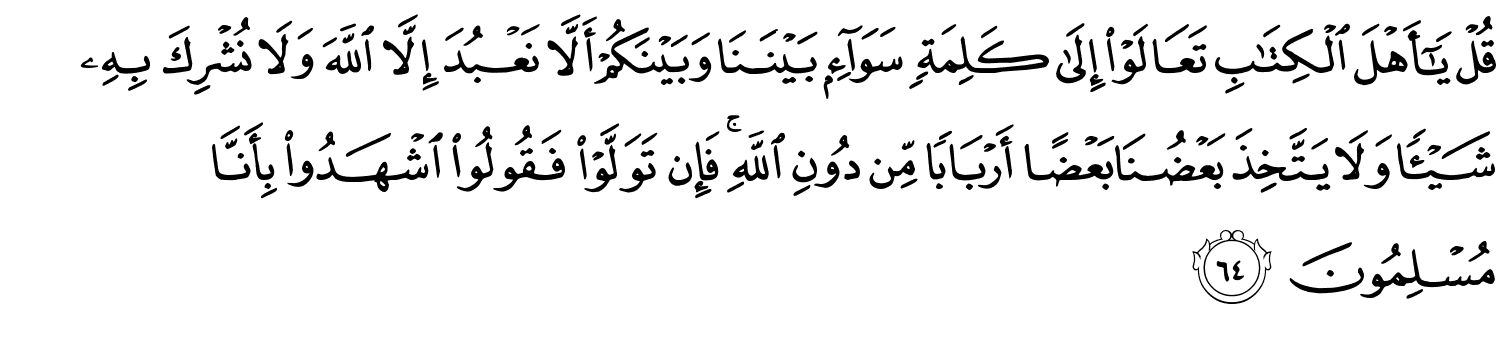 قُلْ يَـٰٓأَهْلَ ٱلْكِتَـٰبِ تَعَالَوْا۟ إِلَىٰ كَلِمَةٍ سَوَآءٍۭ بَيْنَنَا وَبَيْنَكُمْ أَلَّا نَعْبُدَ إِلَّا ٱللَّهَ وَلَا نُشْرِكَ بِهِۦ
شَيْـًٔا وَلَا يَتَّخِذَ بَعْضُنَا بَعْضًا أَرْبَابًا مِّن دُونِ ٱللَّهِ ۚ فَإِن تَوَلَّوْا۟ فَقُولُوا۟ ٱشْهَدُوا۟ بِأَنَّا
مُسْلِمُونَ ٦٤